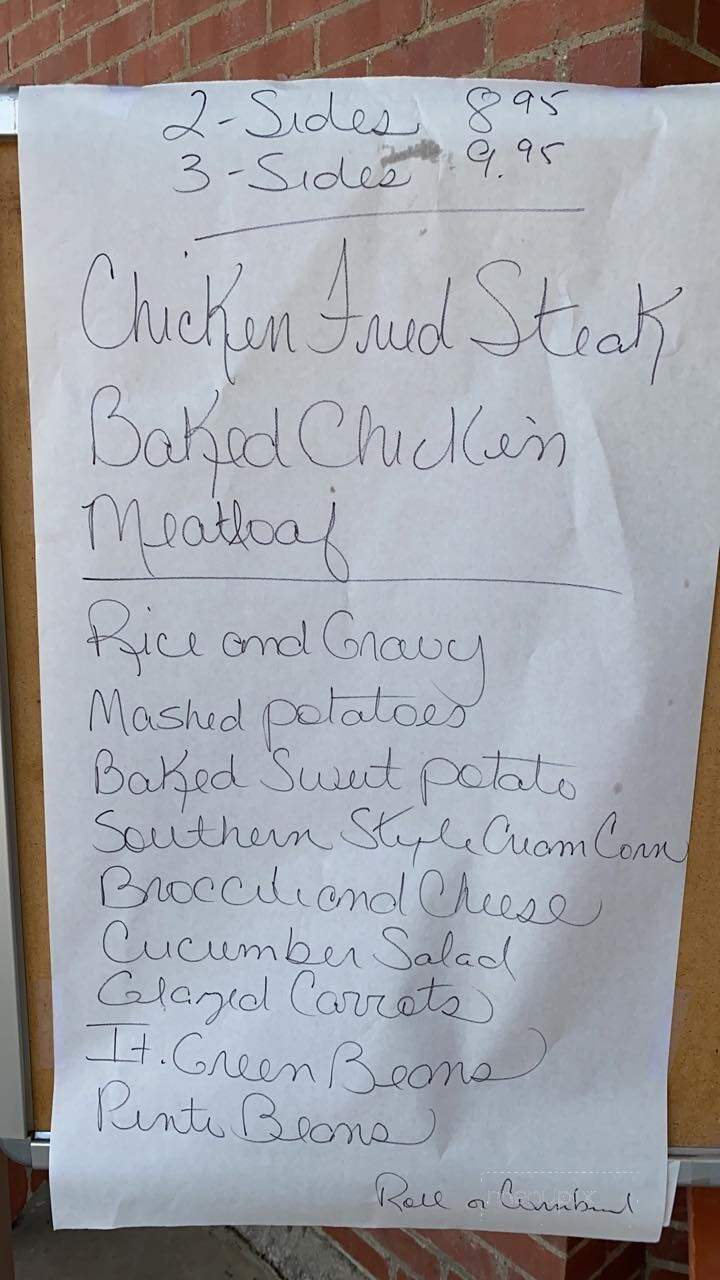 2-Sides 8 95
3-Sides 9.95
Chicken Fried Steak
Baked Chicken
Meatloaf
Rice and Gravy
Mashed potatoes
Baked Sweet potato
Southern Style Cream Corn
Broccoli and Cheese
Cucumber Salad
Glazed Carrots
It. Green Beans
Pinto Beans
Roll or Cornbread
menupix